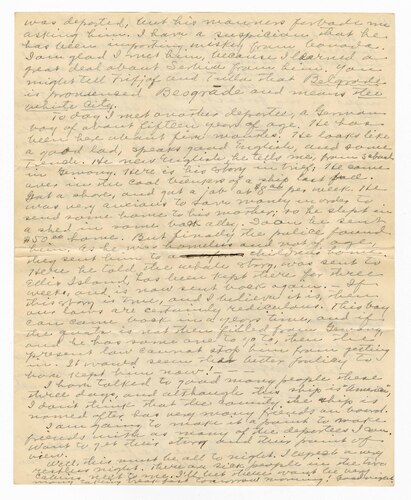 was deported, but his manners forbade me
asking him. I have a suspicion that he
has been importing whisky from Canada.
I am glad I met him, because I learned a
great deal about Serbia from him. You
might tell and that Belgrade
is pronounced Beograde and means the
white city.
To day I met another deportee, a German
boy of about fifteen years of age. He has
been here about five months. He looks like
a good lad, speaks good English, and some
French. He knew English, he tells me, from school
in Germany. Here is his story in brief. He came
over in the coal bunkers of a ship last fall.
Got ashore, and got a job at $8.00 per week. He
was very anxious to save money in order to
send some home to his mother; so he slept in
a shed in some alley. In all he sent
$50.00 home. But finally the police found
him: as he was homeless and not of age,
they sent him to a children's home.
Here he told the whole story, was sent to
Ellis Island, has been kept there for three
weeks, and is now sent back again. — If
this story is true, and I believe it is, then
our laws are certainly rediculous. This boy
can come back in a year's time, and if
the quota is not then filled from Germany,
and he has some one to go to, then the
present law cannot stop him from getting
in. It would seem the better policy to
have kept him now! — — —
I have talked to good many people these
three days, and although this ship is American,
I don't think that the lawmaker the ship is
named after has very many friends on board.
I am going to make it a point to make
friends with as many of the deportees I can.
Want to get their story and their point of
view.
Well, this must be all to night. I expect a very
restless night. There are sick people in the two
cabins next to me. I'll bet there wont be very
many to break fast tomorrow morning! Good night